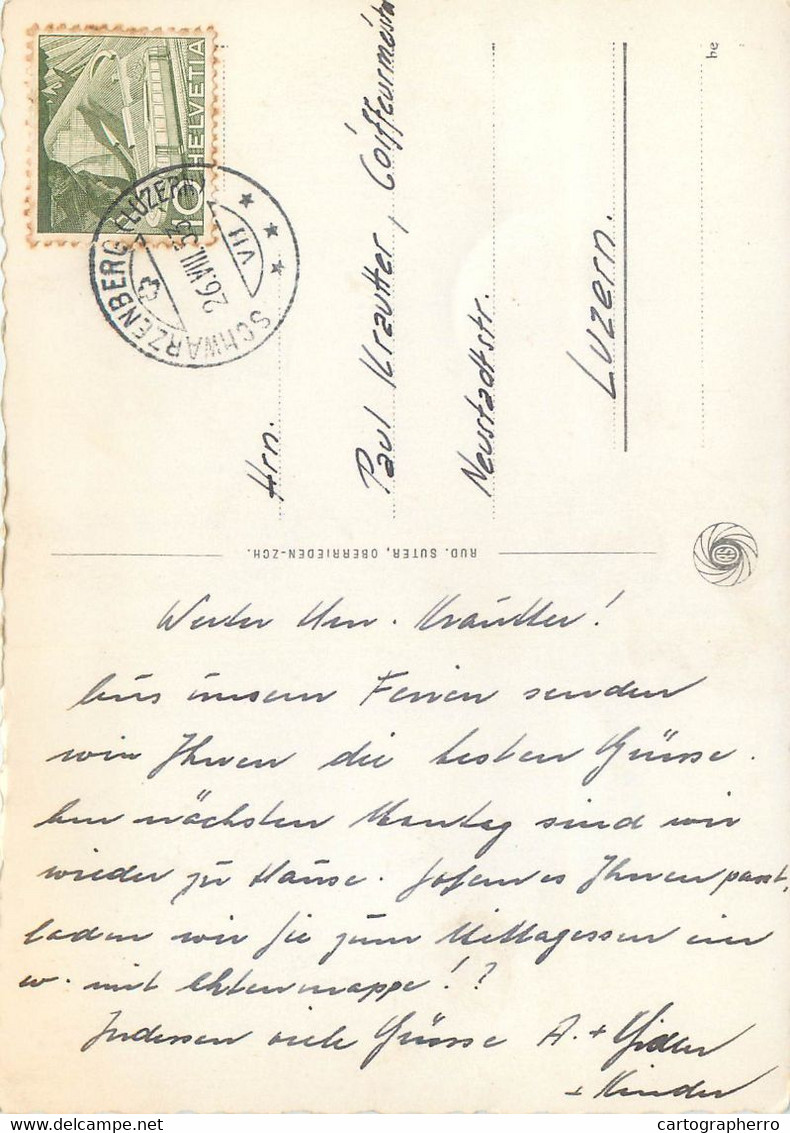 HELVETIA
10
SCHWARZENBERG (LUZERN)
26.VIII.53
VII
Hrn.
Paul Krautter, Coiffeurmeister
Neustadtstr.
Luzern.
he
RUD. SUTER, OBERRIEDEN-ZCH.
RS
Werter Herr. Kräutter!
Aus unsern Ferien senden
wir Ihnen die besten Grüsse.
Am nächsten Montag sind wir
wieder zu Hause. Sofern es Ihnen passt,
laden wir Sie zum Mittagessen ein
u. mit Aktenmappe!?
Indessen viele Grüsse A. +
+ Kinder
cartographerro